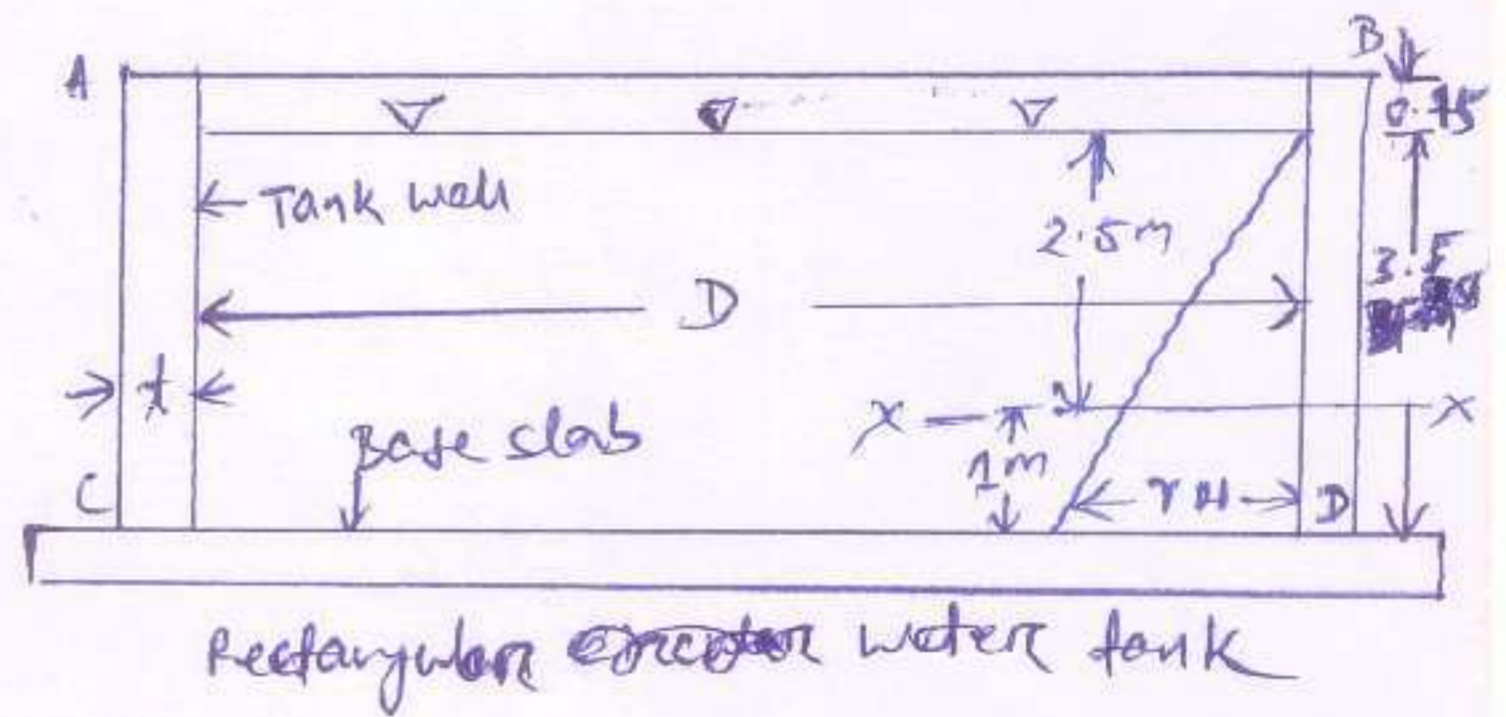 A
B
0.75
Tank wall
2.5m
3.5
D
t
X
X
Base slab
1m
C
γH
D
Rectangular water tank